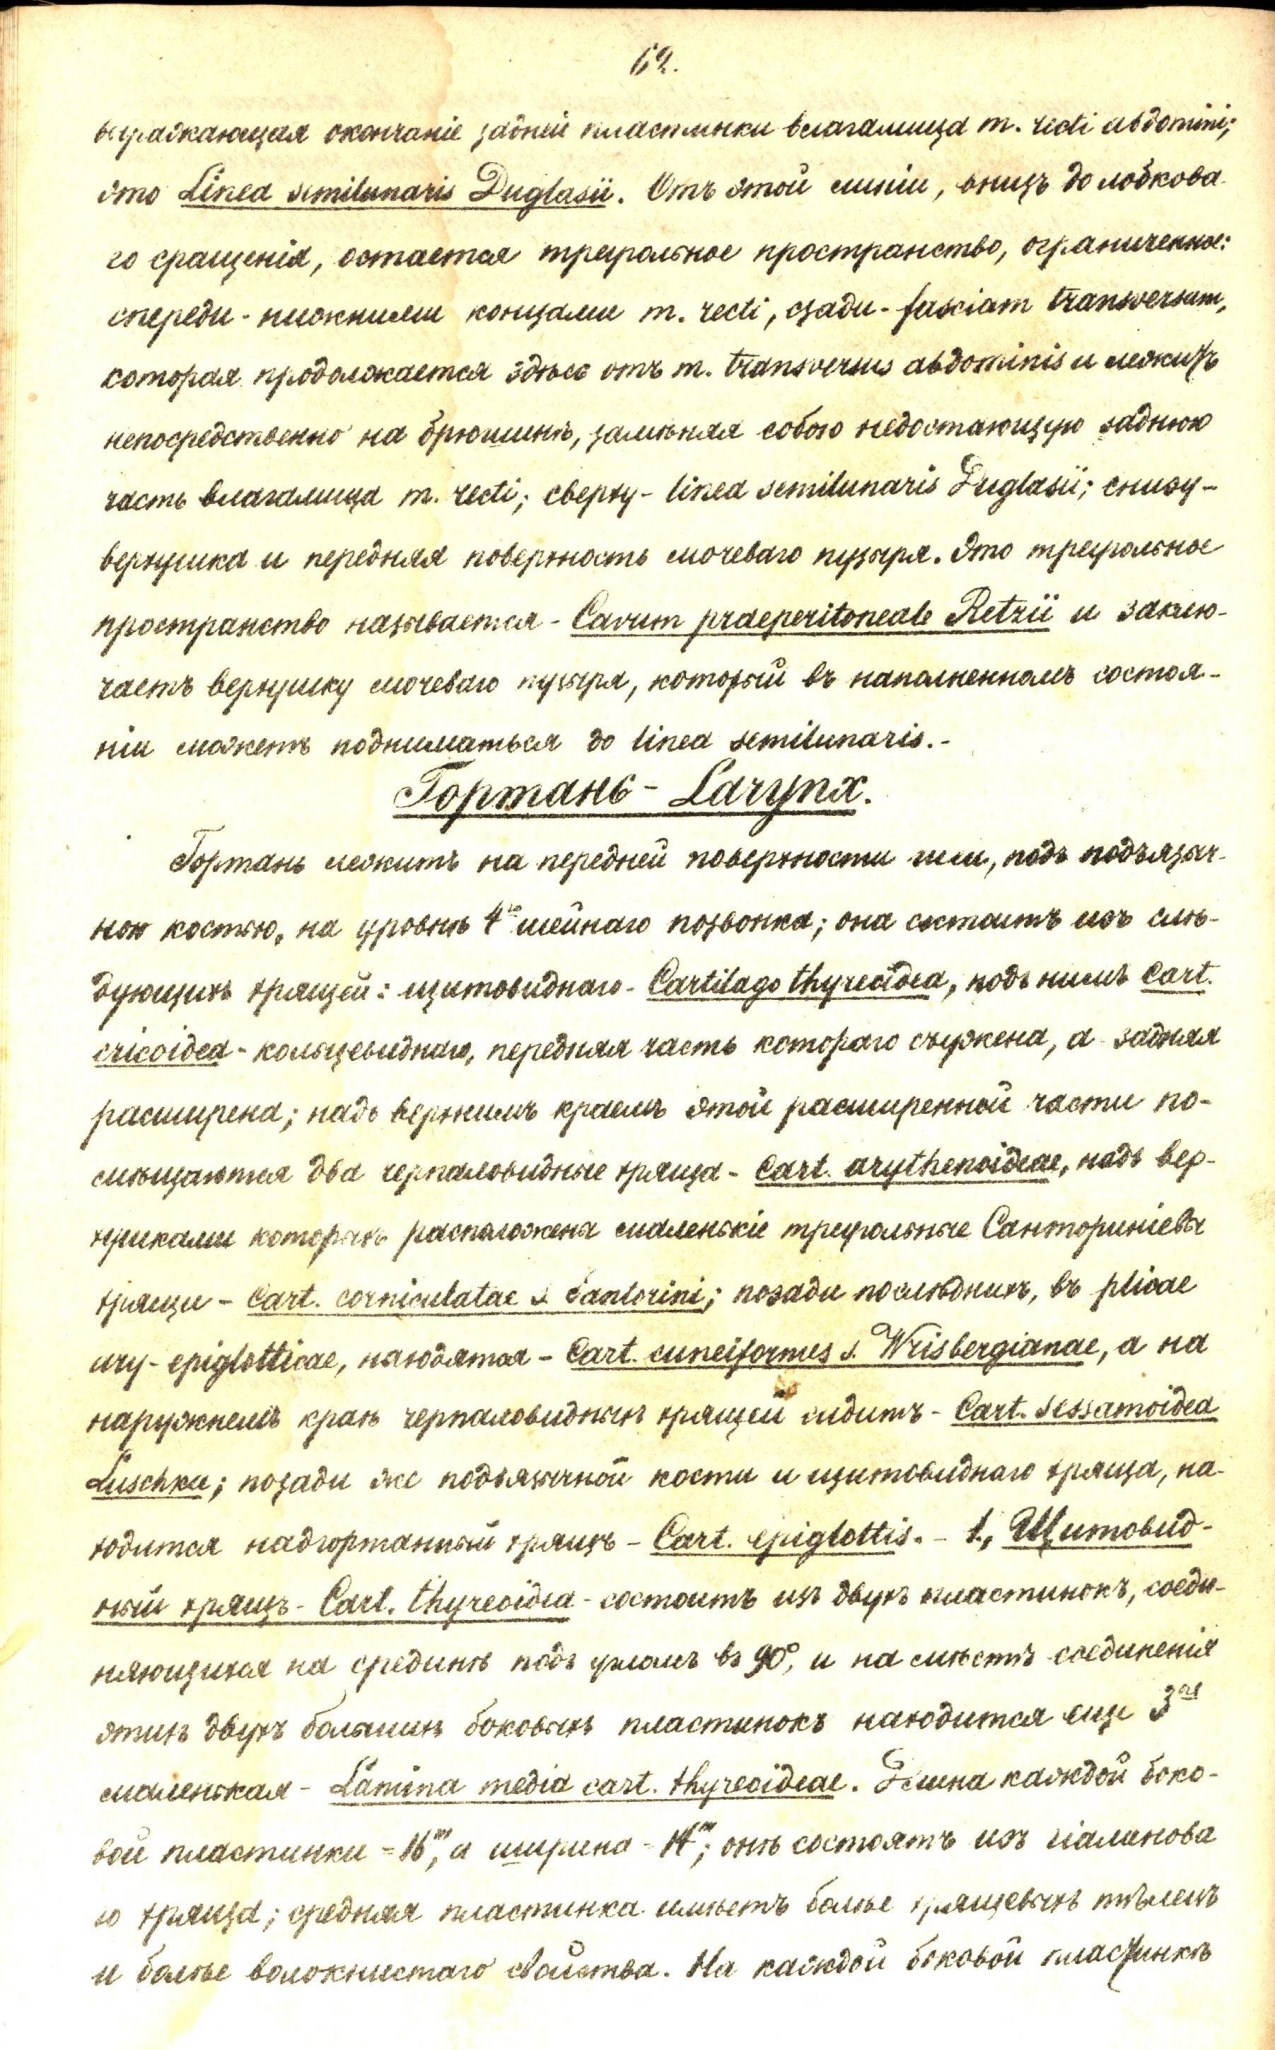 62.
выражающая окончаніе задней пластинки влагалища m. recti abdomini;
это Linea semilunaris Duglasii. Отъ этой линіи, внизъ до лобкова-
го сращенія, остается треугольное пространство, ограниченное:
спереди - нижними концами m. recti, сзади - fasciam transversam,
которая продолжается здѣсь отъ m. transversus abdominis и лежитъ
непосредственно на брюшинѣ, замѣняя собою недостающую заднюю
часть влагалища m. recti; сверху - linea semilunaris Duglasii; снизу -
верхушка и передняя поверхность мочеваго пузыря. Это треугольное
пространство называется - Cavum praeperitoneale Retzii и заклю-
чаетъ верхушку мочеваго пузыря, который въ наполненномъ состоя-
ніи можетъ подниматься до linea semilunaris. -
Гортань - Larynx.
Гортань лежитъ на передней поверхности шеи, подъ подъязыч-
ною костью, на уровнѣ 4го шейнаго позвонка; она состоитъ изъ слѣ-
дующихъ хрящей: щитовиднаго - Cartilago thyreoidea, подъ нимъ Cart.
cricoidea - кольцевиднаго, передняя часть котораго съужена, а задняя
расширена; надъ верхнимъ краемъ этой расширенной части по-
мѣщаются два черпаловидные хряща - Cart. arythenoideae, надъ вер-
хушками которыхъ расположены маленькіе треугольные Санториніевы
хрящи - Cart. corniculatae s. Santorini; позади послѣднихъ, въ plicae
ary-epiglotticae, находятся - Cart. cuneiformes s. Wrisbergianae, а на
наружнемъ краѣ черпаловидныхъ хрящей сидитъ - Cart. sessamoidea
Luschkae; позади же подъязычной кости и щитовиднаго хряща, на-
ходится надгортанный хрящъ - Cart. epiglottis. - 1, Щитовид-
ный хрящъ - Cart. thyreoidea - состоитъ изъ двухъ пластинокъ, соеди-
няющихся на срединѣ подъ угломъ въ 90°, и на мѣстѣ соединенія
этихъ двухъ большихъ боковыхъ пластинокъ находится еще 3ая
маленькая - Lamina media cart. thyreoideae. Длина каждой боко-
вой пластинки = 16''', а ширина - 14'''; онѣ состоятъ изъ гіалинова
го хряща; средняя пластинка имѣетъ болѣе хрящевыхъ тѣлецъ
и болѣе волокнистаго свойства. На каждой боковой пластинкѣ